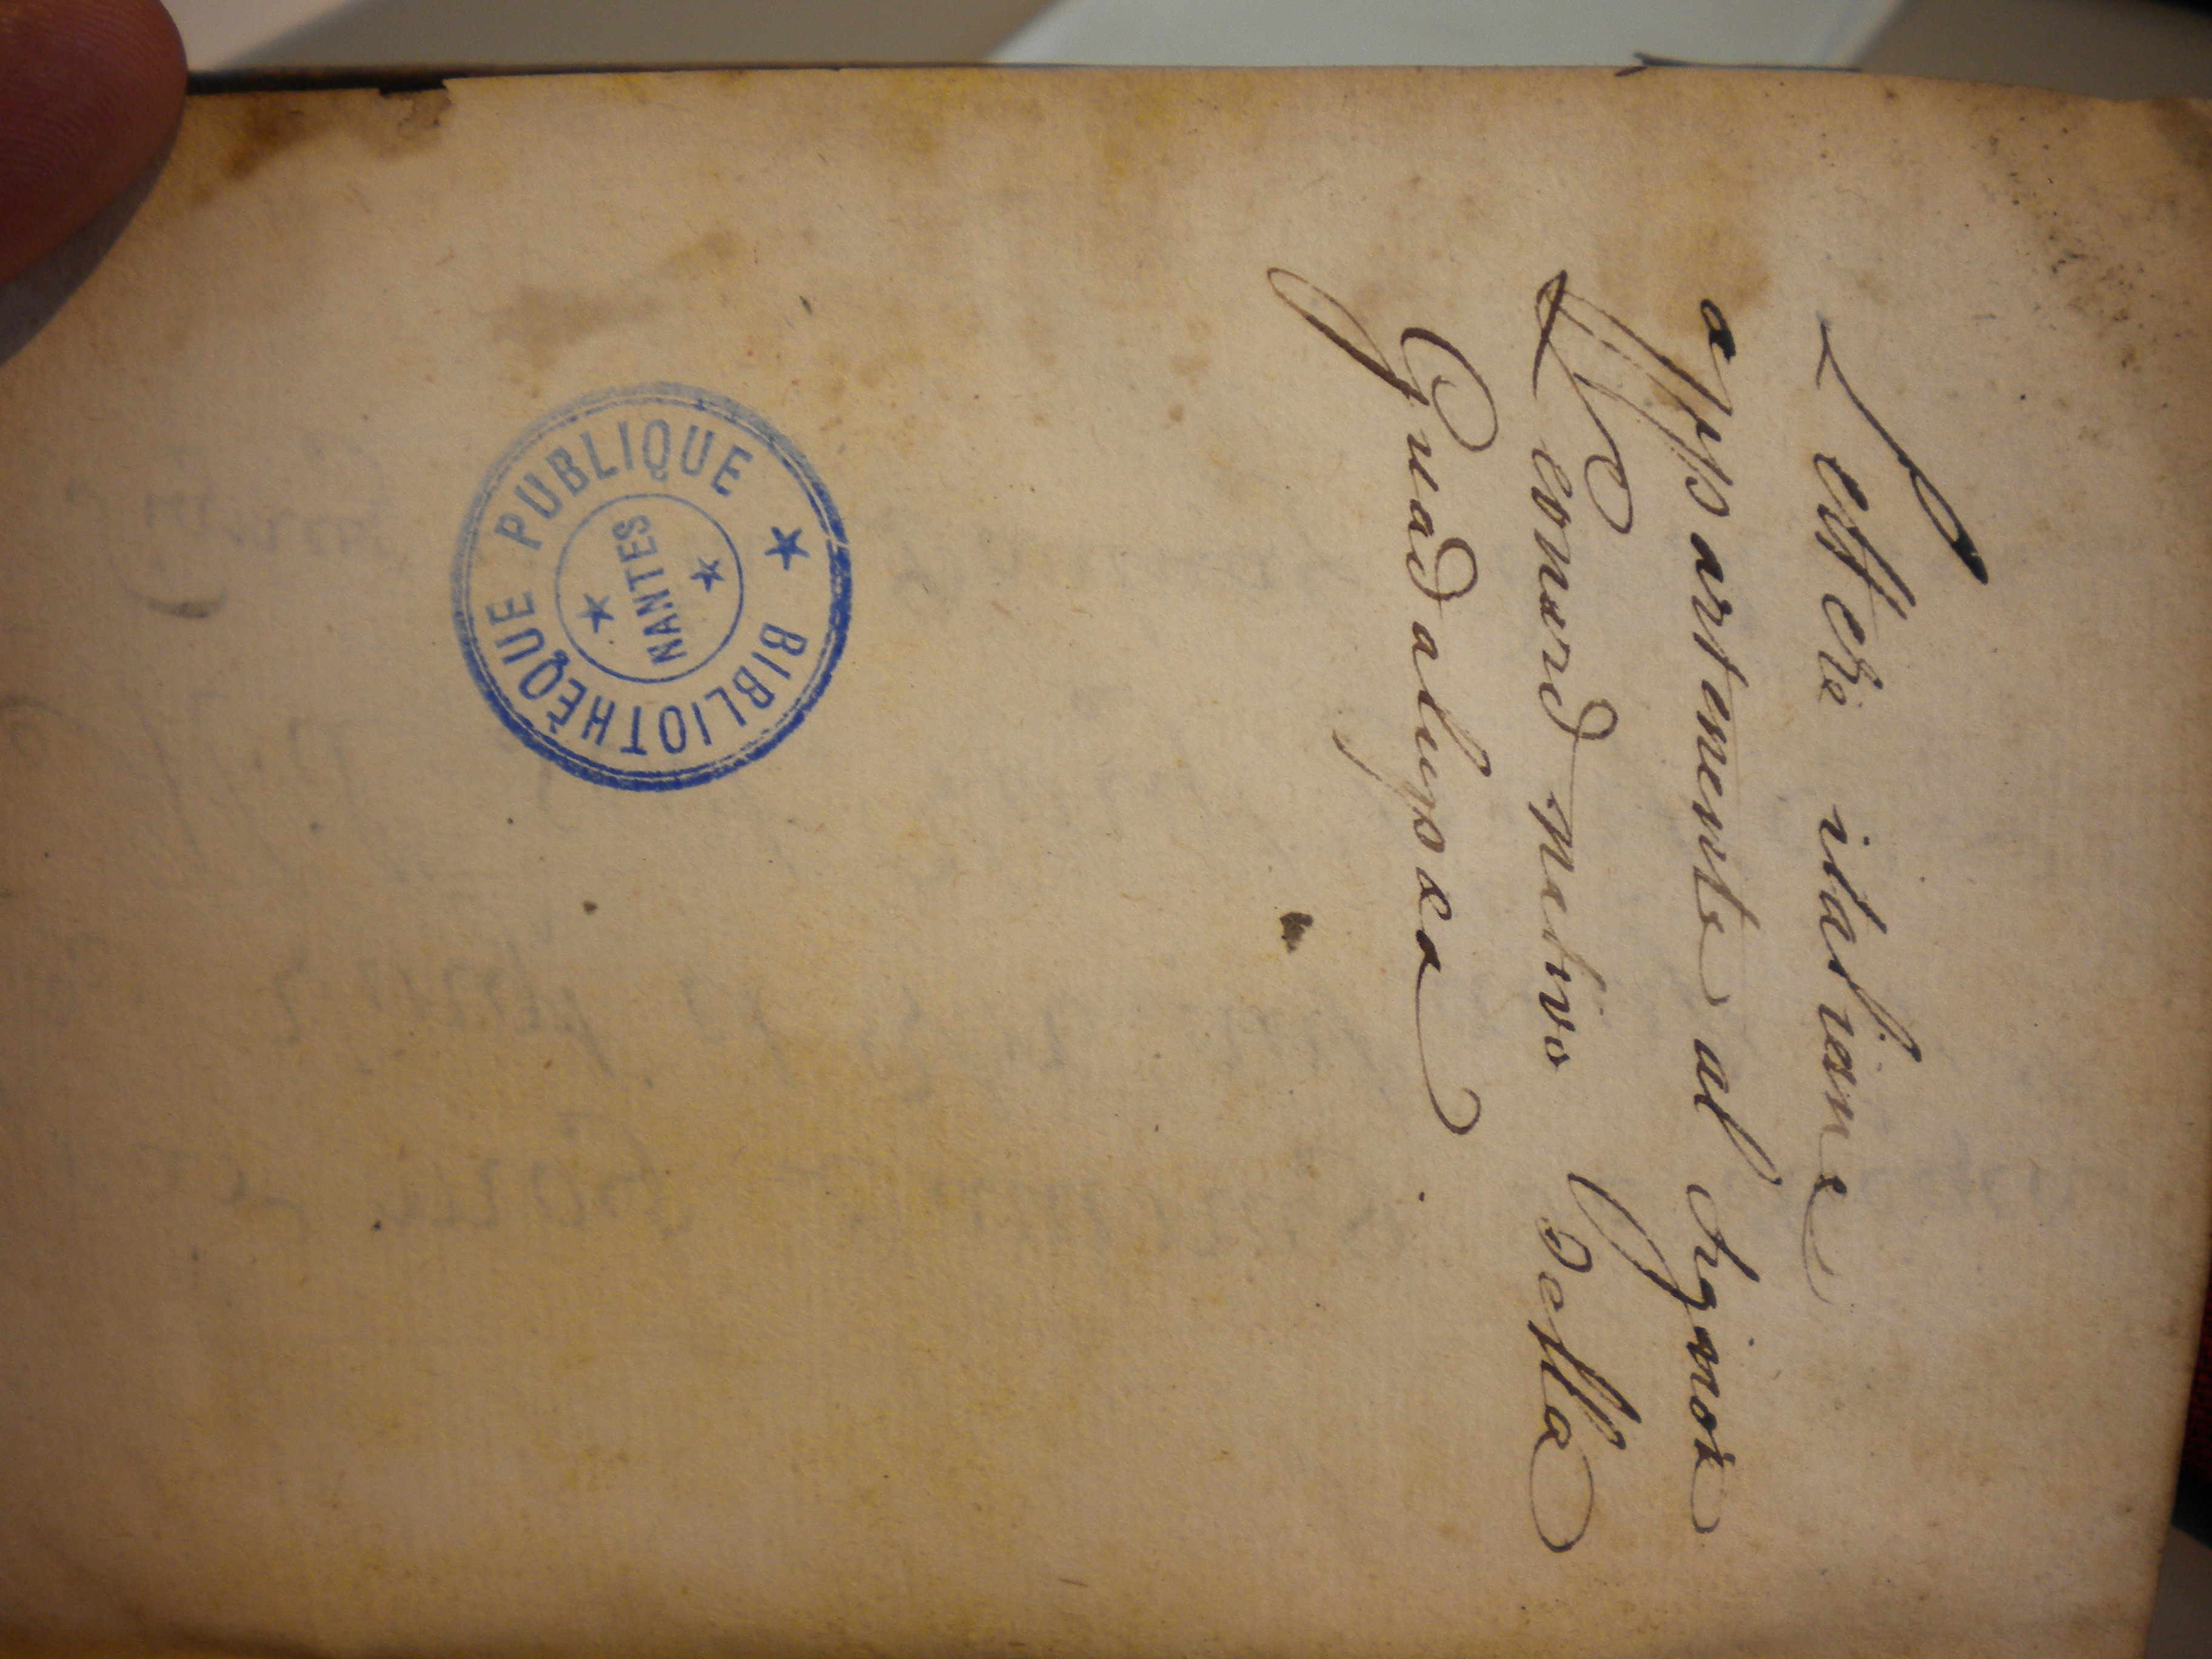 Lettere italiane
appartenente al signor
Leonard nativo della
Guadalupea.
BIBLIOTHÈQUE PUBLIQUE
NANTES